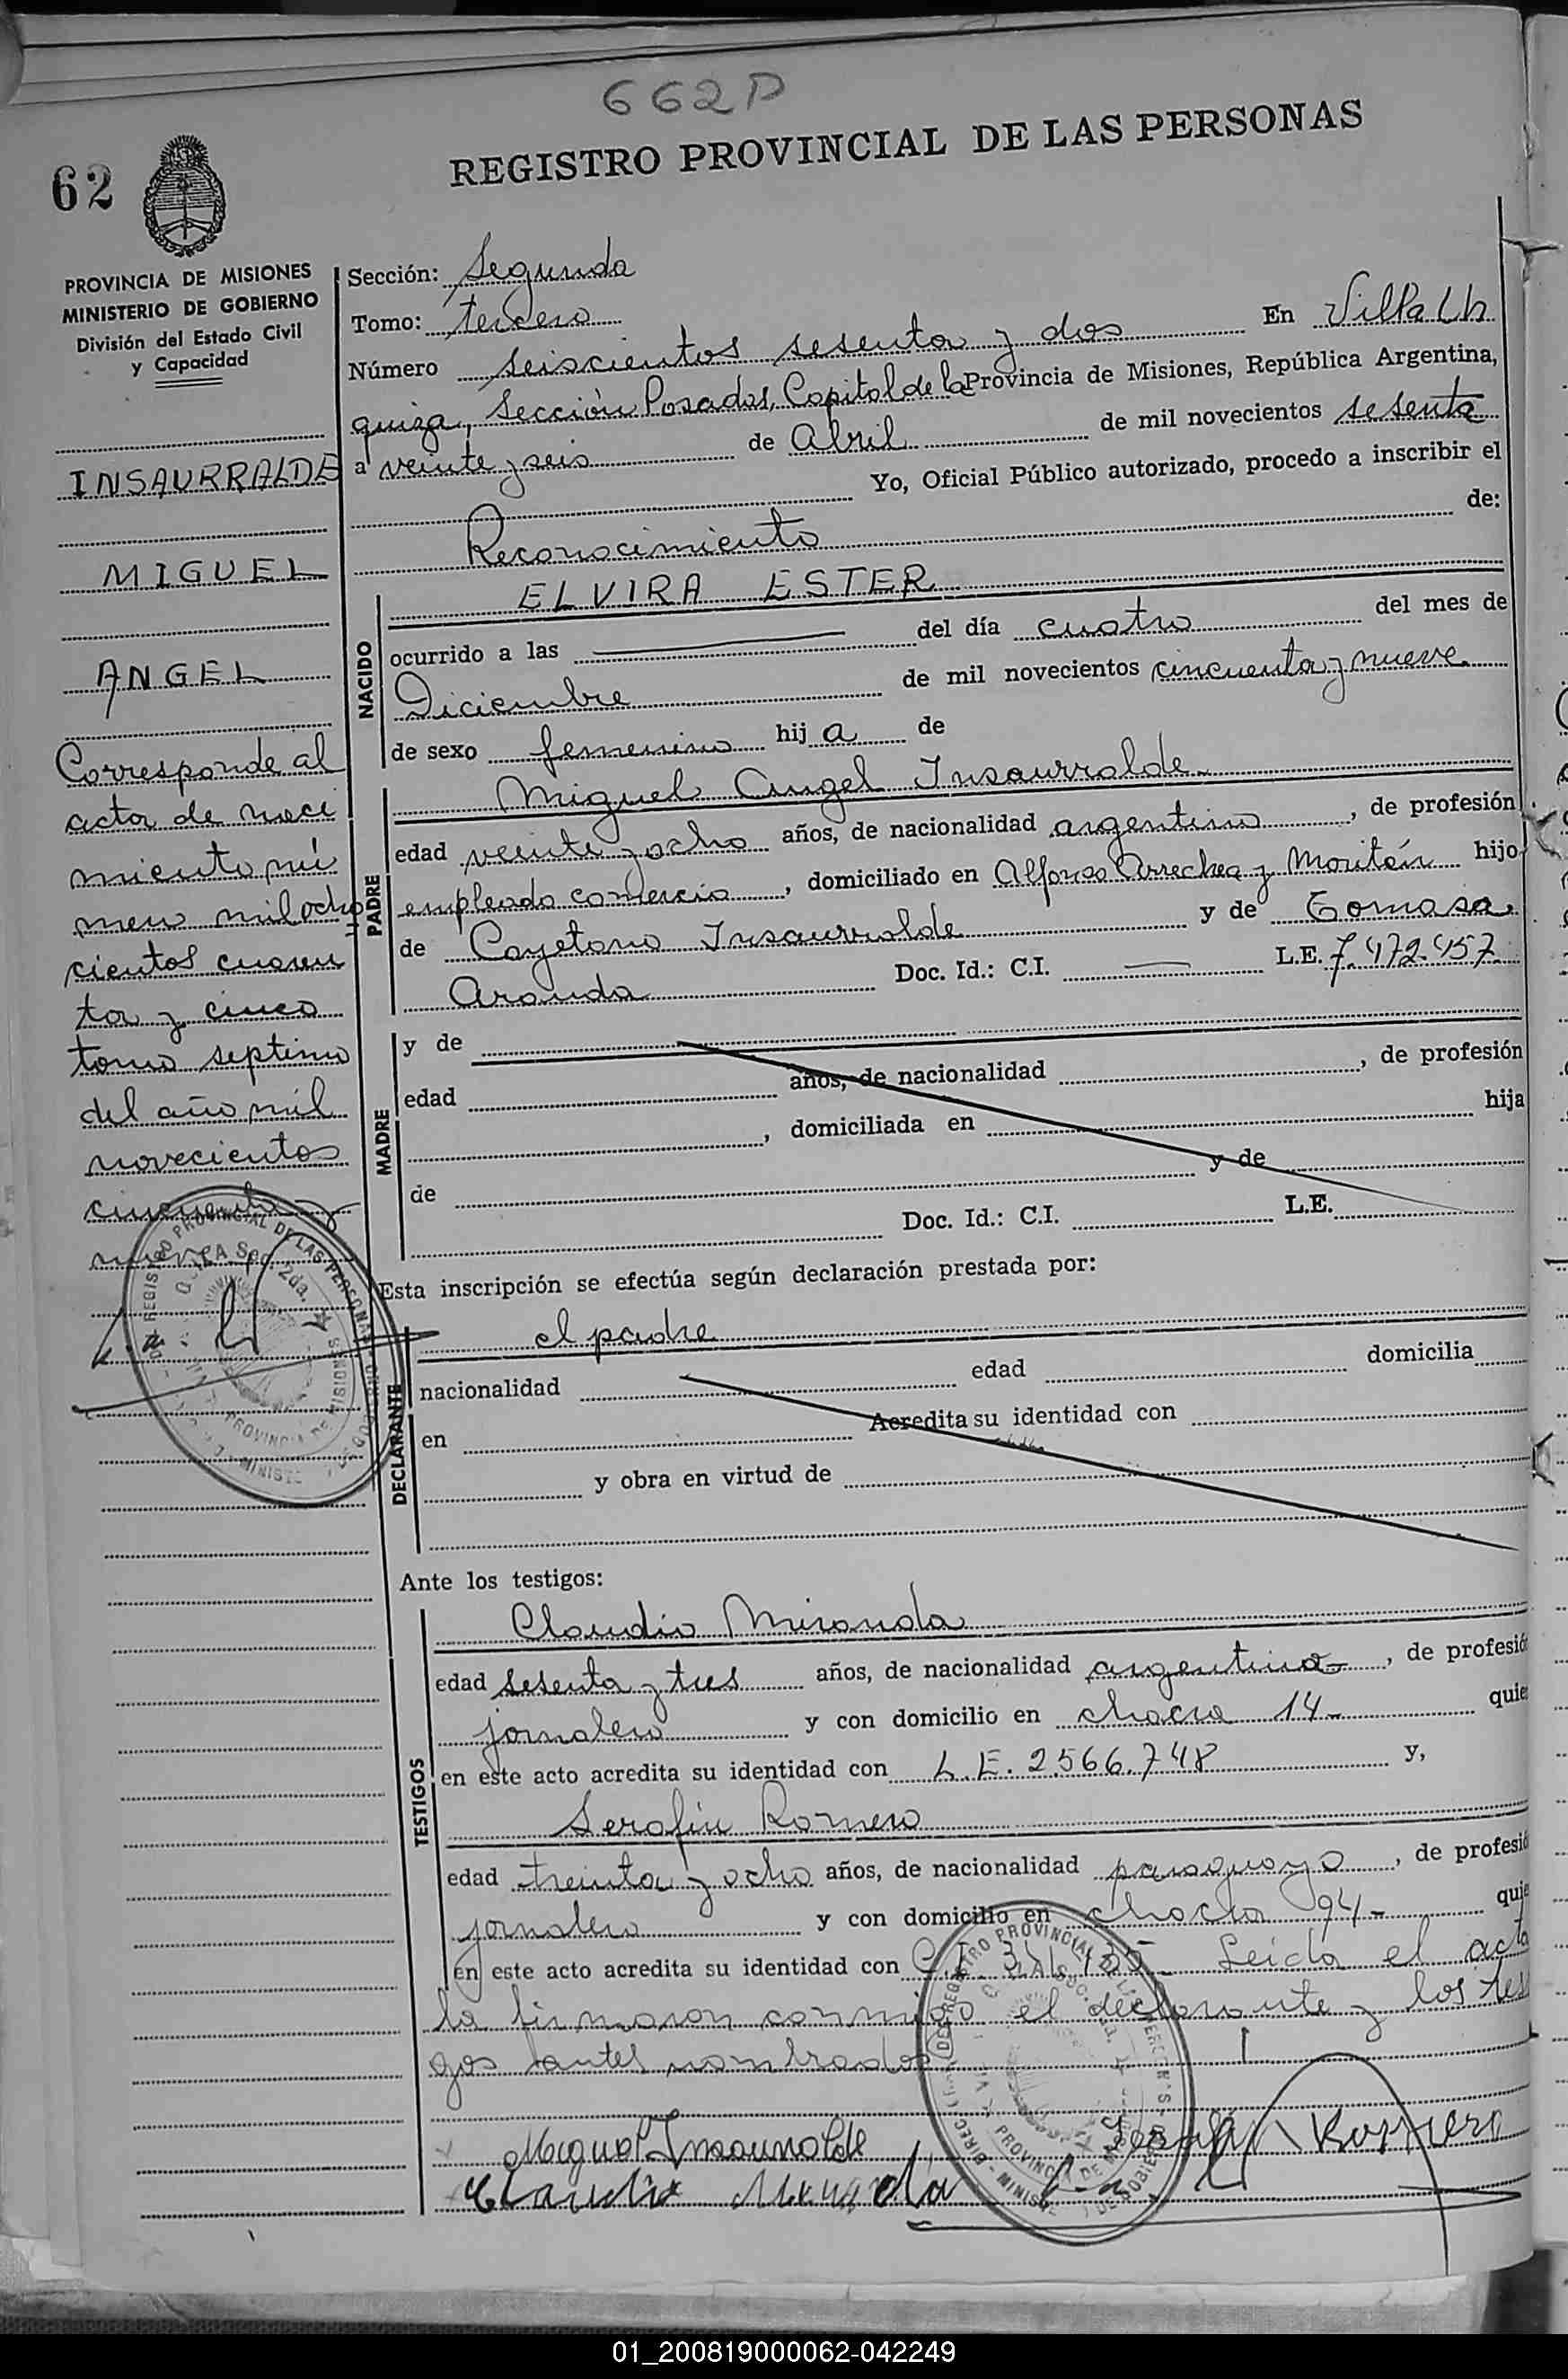 662 D
62
REGISTRO PROVINCIAL DE LAS PERSONAS
PROVINCIA DE MISIONES
MINISTERIO DE GOBIERNO
División del Estado Civil
y Capacidad
INSAURRALDE
MIGUEL
ANGEL
Corresponde al
acta de naci
miento nú
mero mil ocho
cientos cuaren
ta y cinco
tomo septimo
del año mil
novecientos
cincuenta y
nueve
Sección: Segunda
Tomo: tercero
Número seiscientos sesenta y dos En Villa Lan
quiza, Sección Posadas, Capital de la Provincia de Misiones, República Argentina,
a veinte y seis de Abril de mil novecientos sesenta
Yo, Oficial Público autorizado, procedo a inscribir el
Reconocimiento de:
NACIDO
ELVIRA ESTER
ocurrido a las del día cuatro del mes de
Diciembre de mil novecientos cincuenta y nueve
de sexo femenino hija de
PADRE
Miguel Angel Insaurralde
edad veinte y ocho años, de nacionalidad argentino, de profesión
empleado comercio, domiciliado en Alfonso Arrechea y Moritán hijo
de Cayetano Insaurralde y de Tomasa
Aranda Doc. Id.: C.I. L.E. 7.472.457
MADRE
y de
edad años, de nacionalidad , de profesión
, domiciliada en hija
de y de
Doc. Id.: C.I. L.E.
Esta inscripción se efectúa según declaración prestada por:
DECLARANTE
el padre
nacionalidad edad domicilia
en Acredita su identidad con
y obra en virtud de
Ante los testigos:
TESTIGOS
Claudio Miranda
edad sesenta y tres años, de nacionalidad argentino, de profesió
jornalero y con domicilio en chacra 14- quie
en este acto acredita su identidad con L.E. 2.566.748 y,
Serafin Romero
edad treinta y ocho años, de nacionalidad paraguayo, de profesió
jornalero y con domicilio en chacra 94- quie
en este acto acredita su identidad con C.I. Leida el acta
la firmaron conmigo el declarante y los tes
gos antes nombrados
Miguel Insaurralde Serafin Romero
Claudio Miranda
01_200819000062-042249